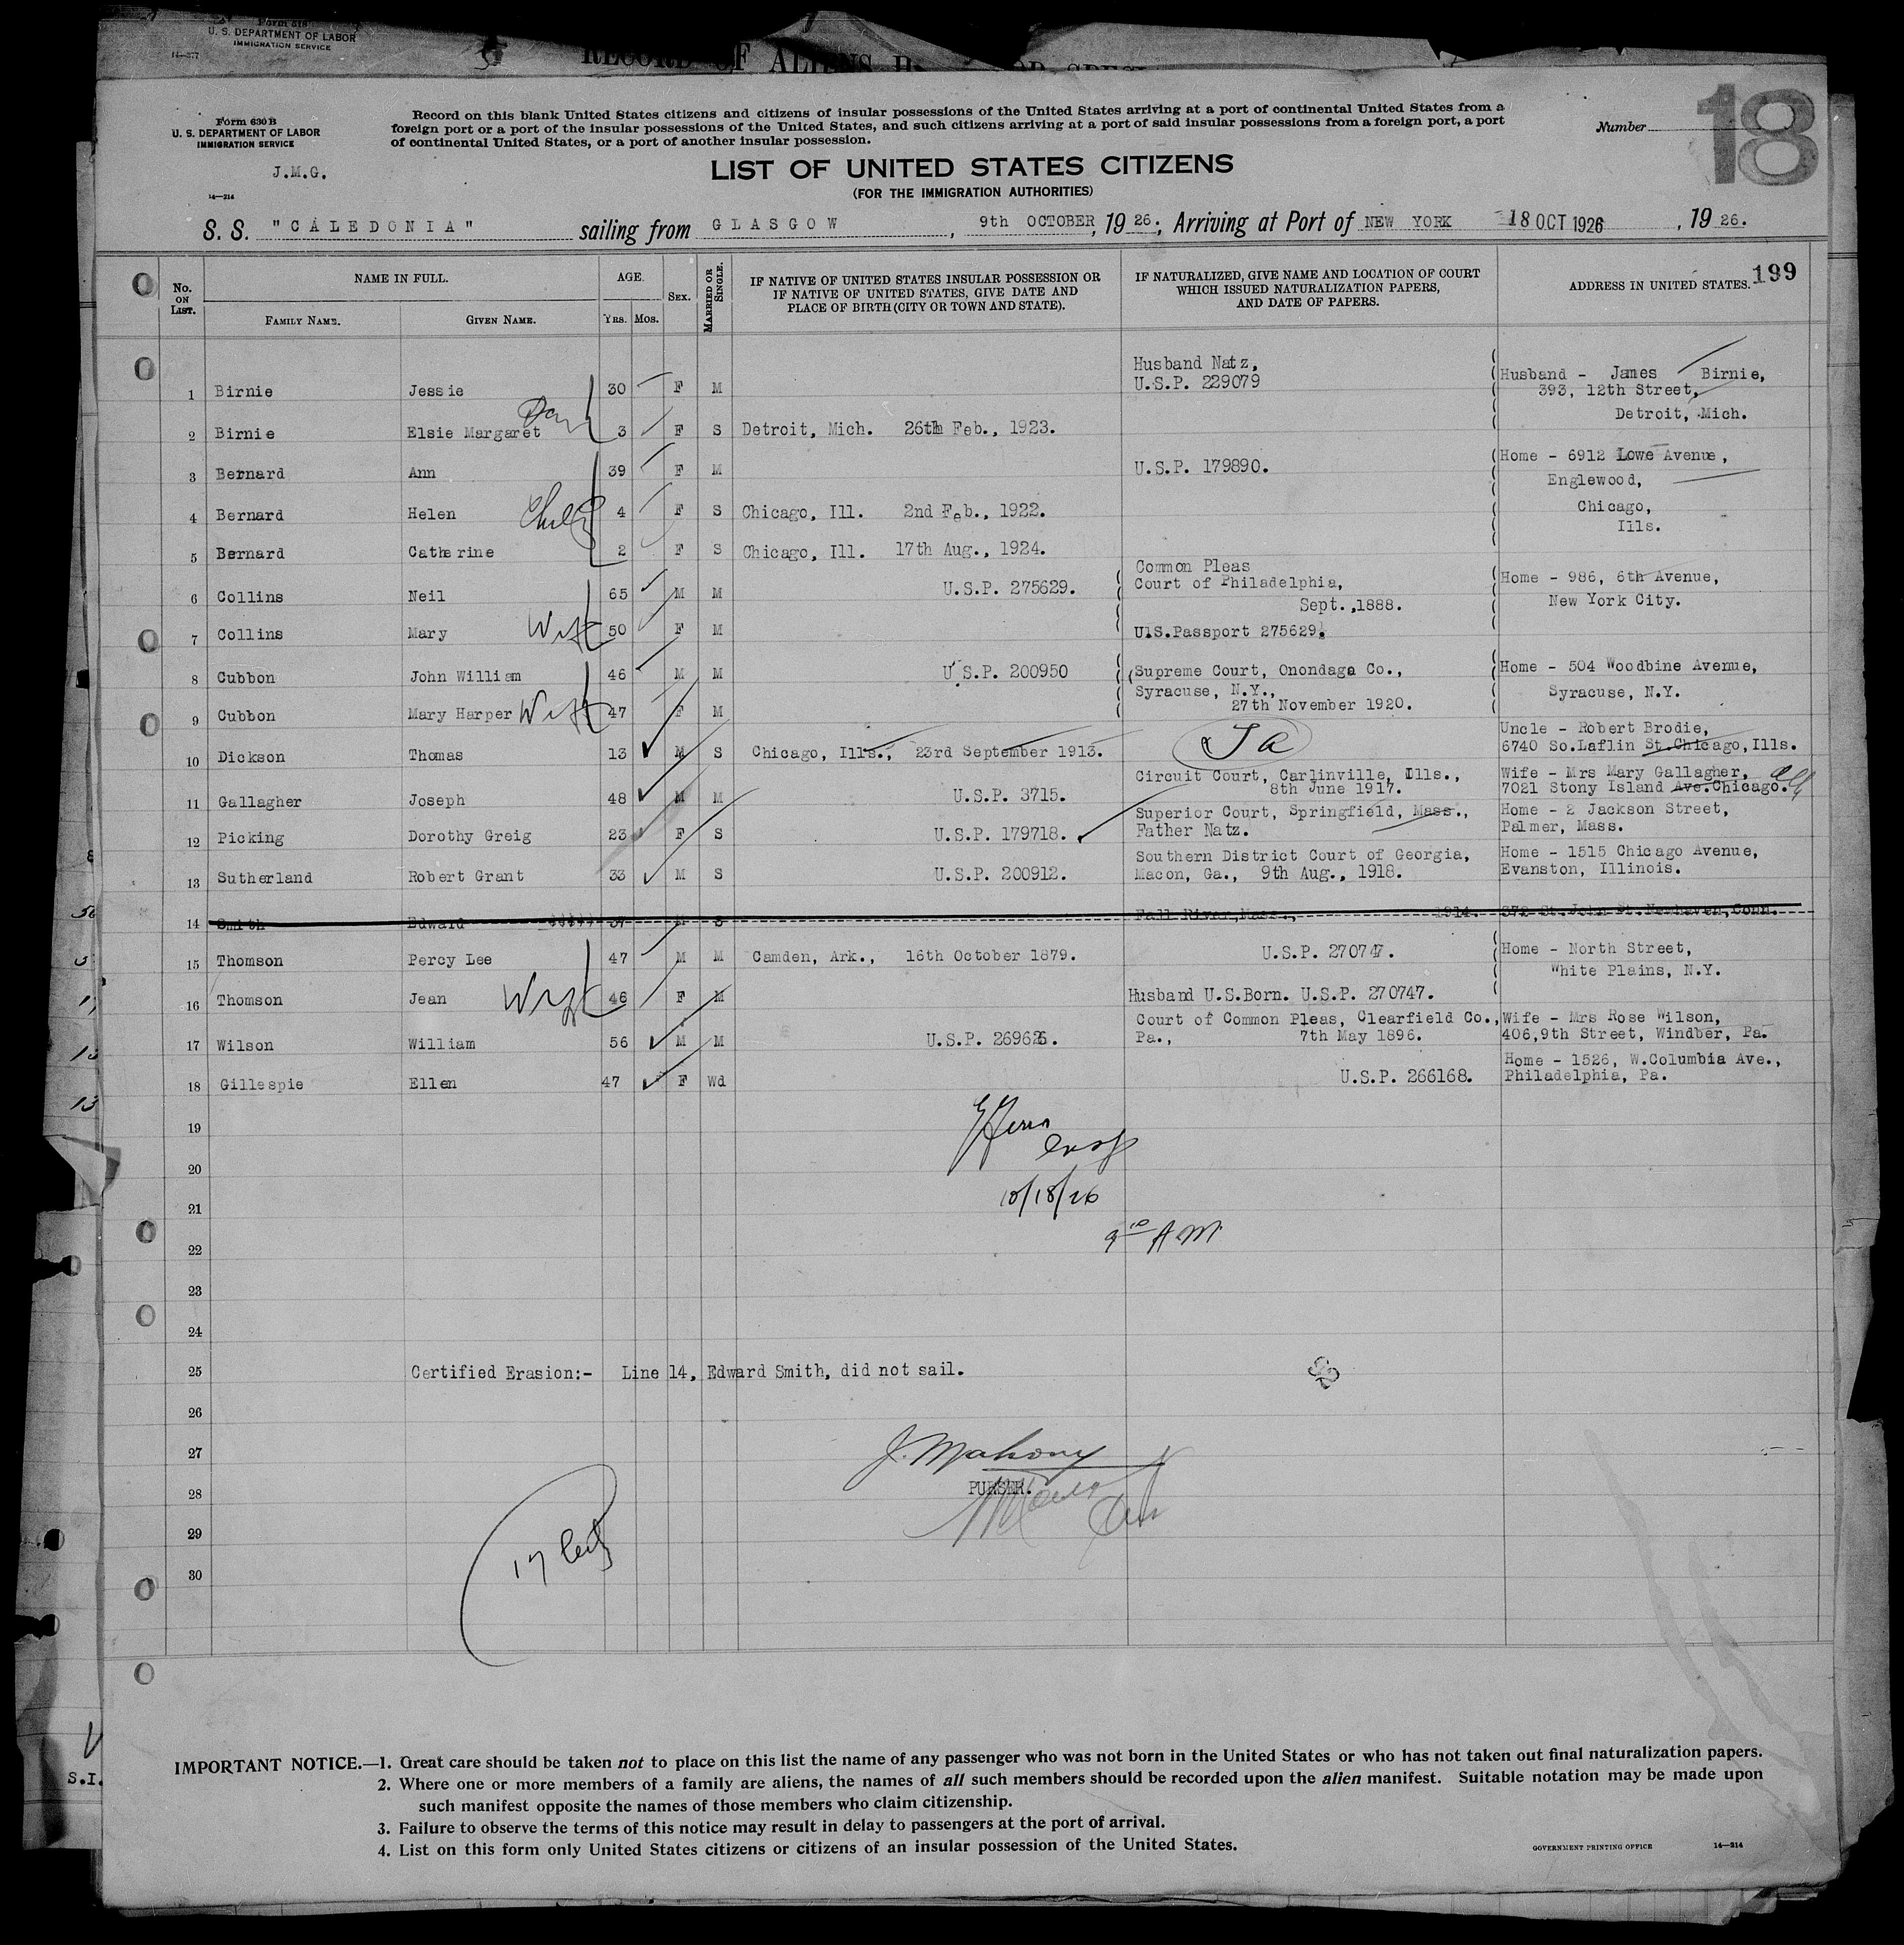 Form 618
U. S. DEPARTMENT OF LABOR
IMMIGRATION SERVICE
14-377
RECORD OF ALIENS
Form 630 B
U. S. DEPARTMENT OF LABOR
IMMIGRATION SERVICE
J.M.G.
14—214
Record on this blank United States citizens and citizens of insular possessions of the United States arriving at a port of continental United States from a
foreign port or a port of the insular possessions of the United States, and such citizens arriving at a port of said insular possessions from a foreign port, a port
of continental United States, or a port of another insular possession.
Number 18
LIST OF UNITED STATES CITIZENS
(FOR THE IMMIGRATION AUTHORITIES)
S. S. "CALEDONIA" sailing from GLASGOW, 9th OCTOBER, 1926; Arriving at Port of NEW YORK 18 OCT 1926, 1926.
199
No. ON LIST. NAME IN FULL. FAMILY NAME. GIVEN NAME. AGE. YRS. MOS. SEX. MARRIED OR SINGLE.
IF NATIVE OF UNITED STATES INSULAR POSSESSION OR
IF NATIVE OF UNITED STATES, GIVE DATE AND
PLACE OF BIRTH (CITY OR TOWN AND STATE).
IF NATURALIZED, GIVE NAME AND LOCATION OF COURT
WHICH ISSUED NATURALIZATION PAPERS,
AND DATE OF PAPERS.
ADDRESS IN UNITED STATES.
Husband Natz,
1 Birnie Jessie 30 F M U.S.P. 229079 Husband - James Birnie,
393, 12th Street,
Detroit, Mich.
2 Birnie Elsie Margaret 3 F S Detroit, Mich. 26th Feb., 1923.
3 Bernard Ann 39 F M U.S.P. 179890. Home - 6912 Lowe Avenue,
Englewood,
4 Bernard Helen 4 F S Chicago, Ill. 2nd Feb., 1922. Chicago,
Ills.
5 Bernard Catherine 2 F S Chicago, Ill. 17th Aug., 1924.
Common Pleas
6 Collins Neil 65 M M U.S.P. 275629. Court of Philadelphia, Home - 986, 6th Avenue,
Sept.,1888. New York City.
7 Collins Mary Wife 50 F M U.S.Passport 275629.
8 Cubbon John William 46 M M U.S.P. 200950 Supreme Court, Onondaga Co., Home - 504 Woodbine Avenue,
Syracuse, N.Y., Syracuse, N.Y.
27th November 1920.
9 Cubbon Mary Harper Wife 47 F M
Uncle - Robert Brodie,
10 Dickson Thomas 13 M S Chicago, Ills., 23rd September 1913. 6740 So.Laflin St.Chicago,Ills.
Circuit Court, Carlinville, Ills., Wife - Mrs Mary Gallagher,
11 Gallagher Joseph 48 M M U.S.P. 3715. 8th June 1917. 7021 Stony Island Ave.Chicago.
Superior Court, Springfield, Mass., Home - 2 Jackson Street,
12 Picking Dorothy Greig 23 F S U.S.P. 179718. Father Natz. Palmer, Mass.
Southern District Court of Georgia, Home - 1515 Chicago Avenue,
13 Sutherland Robert Grant 33 M S U.S.P. 200912. Macon, Ga., 9th Aug., 1918. Evanston, Illinois.
14 Smith Edward 37 M S Fall River,Mass., 1914. St.John St.Newhaven,Conn.
15 Thomson Percy Lee 47 M M Camden, Ark., 16th October 1879. U.S.P. 270747. Home - North Street,
White Plains, N.Y.
16 Thomson Jean Wife 46 F M Husband U.S.Born. U.S.P. 270747.
Court of Common Pleas, Clearfield Co., Wife - Mrs Rose Wilson,
17 Wilson William 56 M M U.S.P. 269626. Pa., 7th May 1896. 406,9th Street, Windber, Pa.
Home - 1526, W.Columbia Ave.,
18 Gillespie Ellen 47 F Wd U.S.P. 266168. Philadelphia, Pa.
19
20
10/18/26
21
9 10 AM
22
23
24
25 Certified Erasion:- Line 14, Edward Smith, did not sail.
26
27 J. Mahony
28 PURSER.
29
30
IMPORTANT NOTICE.—1. Great care should be taken not to place on this list the name of any passenger who was not born in the United States or who has not taken out final naturalization papers.
2. Where one or more members of a family are aliens, the names of all such members should be recorded upon the alien manifest. Suitable notation may be made upon
such manifest opposite the names of those members who claim citizenship.
3. Failure to observe the terms of this notice may result in delay to passengers at the port of arrival.
4. List on this form only United States citizens or citizens of an insular possession of the United States.
GOVERNMENT PRINTING OFFICE 14—214
S.I.